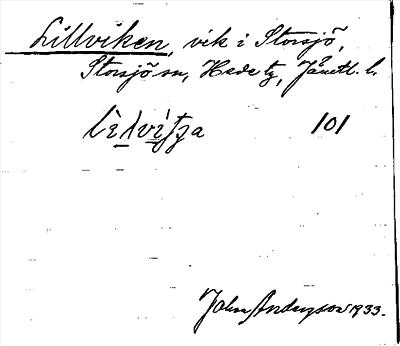 Lillviken, vik i Storsjö,
Storsjö sn, Hede tg, Jämtl. l.
101
John Andersson 1933.